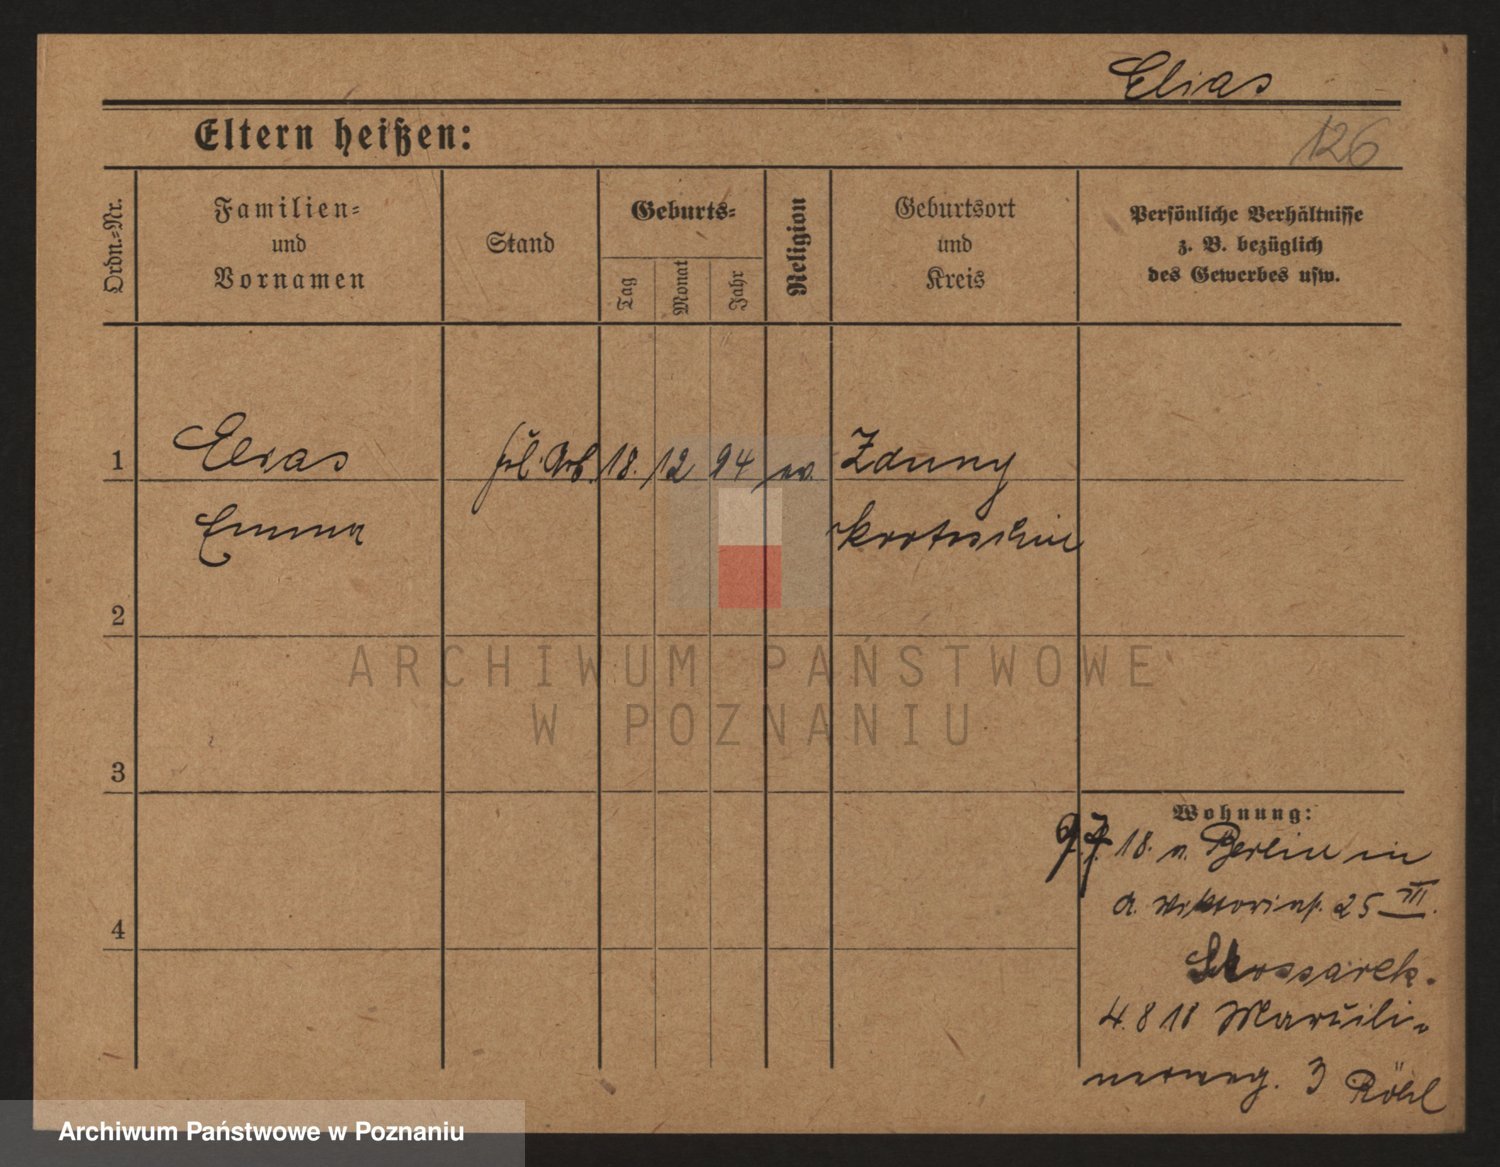 Elias
Eltern heißen:
126
Ordn.-Nr.
Familien-
und
Vornamen
Stand
Geburts-
Tag
Monat
Jahr
Religion
Geburtsort
und
Kreis
Persönliche Verhältnisse
z. B. bezüglich
des Gewerbes usw.
1 Elias 18. 12 94 ev. Zduny
Emma Krotoschin
2
ARCHIWUM PAŃSTWOWE
W POZNANIU
3
Wohnung:
9.7. 18. v. Berlin in
25 III.
4
4. 8 18
3 Röhl
Archiwum Państwowe w Poznaniu